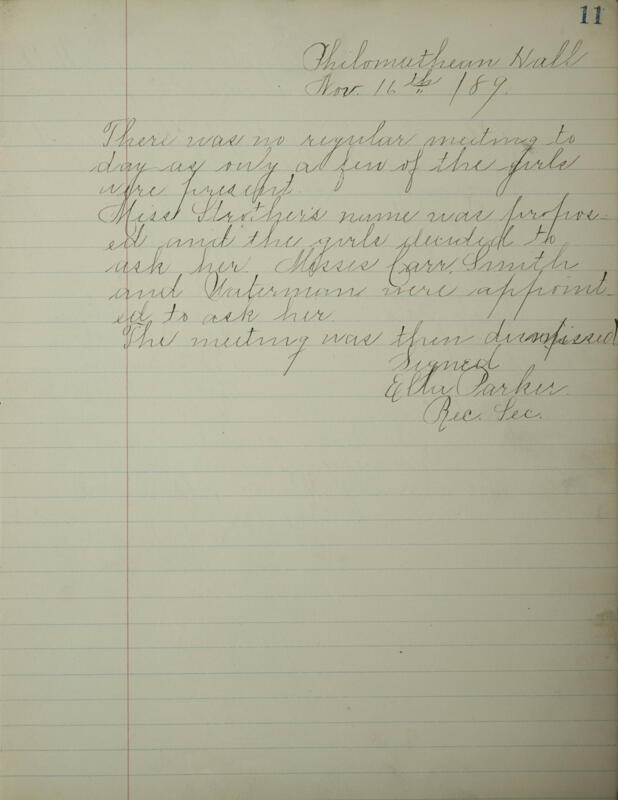 11
Philomathean Hall
Nov. 16th 189.
There was no regular meeting to
day as only a few of the girls
were present.
Miss Strother's name was propos-
ed and the girls decided to
ask her. Misses Carr, Smith
and Waterman were appoint-
ed to ask her.
The meeting was then dismissed
Signed
Ella Parker.
Rec. Sec.